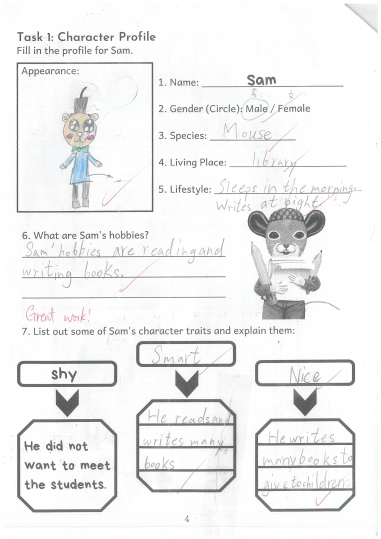 Task 1: Character Profile
Fill in the profile for Sam.
Appearance:
1. Name: Sam
2. Gender (Circle): Male / Female
3. Species: Mouse
4. Living Place: library
5. Lifestyle: Sleeps in the morning.
Writes at night
6. What are Sam's hobbies?
Sam' hobbies are reading and
writing books.
Great work!
7. List out some of Sam's character traits and explain them:
shy
Smart
Nice
He did not
want to meet
the students.
He reads and
writes many
books
He writes
many books to
give to children
4